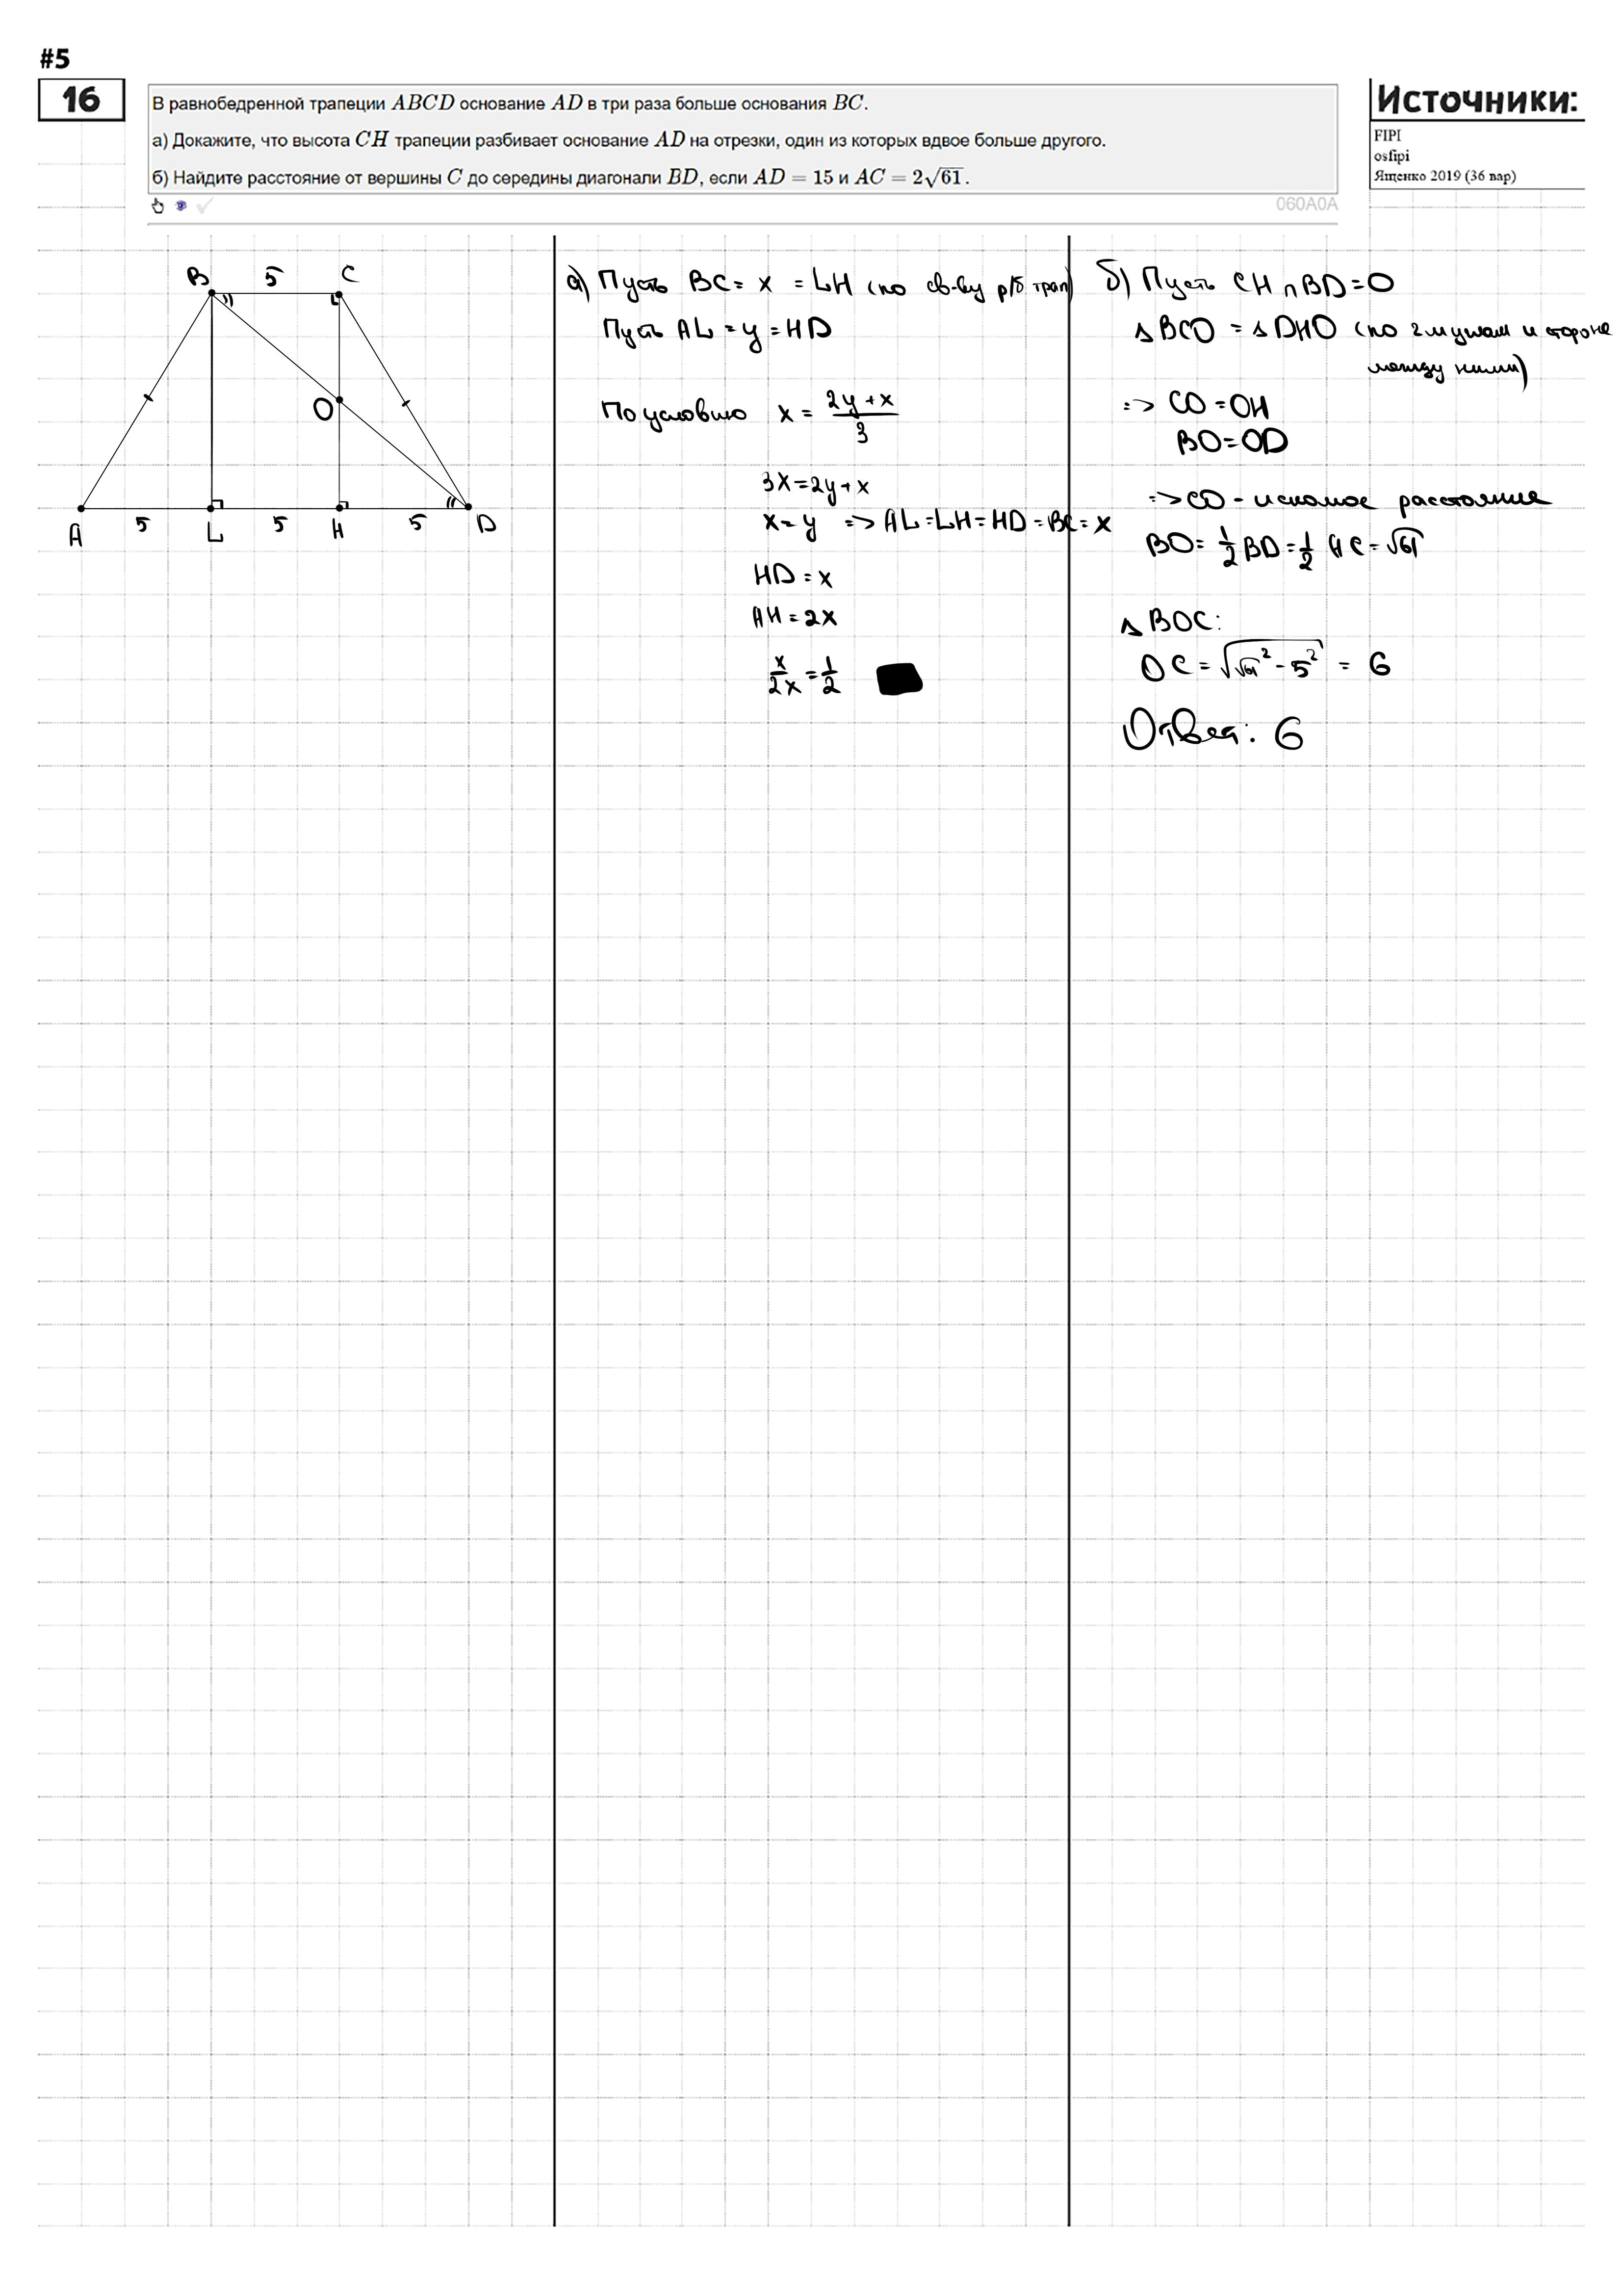 #5
16
В равнобедренной трапеции ABCD основание AD в три раза больше основания BC.
а) Докажите, что высота CH трапеции разбивает основание AD на отрезки, один из которых вдвое больше другого.
б) Найдите расстояние от вершины C до середины диагонали BD, если AD = 15 и AC = 2√61.
060A0A
Источники:
FIPI
osfipi
Ященко 2019 (36 вар)
B 5 C
O
A 5 L 5 H 5 D
а) Пусть BC = x = LH (по св-ву р/б трап)
Пусть AL = y = HD
По условию x = (2y + x)/3
3x = 2y + x
x = y => AL = LH = HD = BC = x
HD = x
AH = 2x
x/2x = 1/2
б) Пусть CH ∩ BD = O
△BCO = △DHO (по 2м углам и стороне
между ними)
=> CO = OH
BO = OD
=> CO - искомое расстояние
BO = 1/2 BD = 1/2 AC = √61
△BOC:
OC = √(√61² - 5²) = 6
Ответ: 6